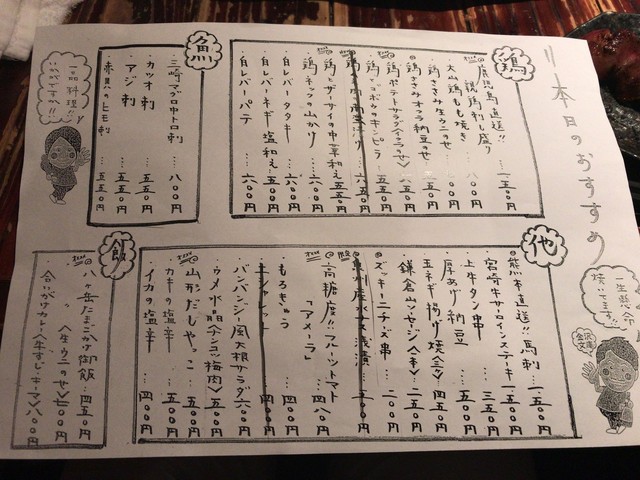 本日のおすすめ
一生懸命焼いてます!!
鶏
鹿児島直送!!
親鶏刺し盛り …一、五〇〇円
大山鶏もも焼き …八〇〇円
鶏ささみ生ウニのせ
鶏ささみオクラ納豆のせ …五五〇円
鶏ポテトサラダ
鶏ゴボウのキンピラ
鶏とザーサイの中華和え …五五〇円
鶏ネックの山かけ …六〇〇円
白レバータタキ …六〇〇円
白レバーネギ塩和え …六五〇円
白レバーパテ …六〇〇円
魚
三崎マグロ中トロ刺 …八〇〇円
カツオ刺 …五五〇円
アジ刺 …五五〇円
赤貝のヒモ刺 …五五〇円
一品料理!!
いかがですか!!
他
熊本直送!!馬刺 …一、五〇〇円
宮崎牛サーロインステーキ 一、五〇〇円
上牛タン串 …三五〇円
厚あげ納豆 …五〇〇円
玉ネギ揚げ焼 …四五〇円
鎌倉ソーセージ
ズッキーニチーズ串 …二五〇円
高糖度!!フルーツトマト
「アメーラ」 …四八〇円
もろきゅう …四〇〇円
バンバンジー風大根サラダ 六〇〇円
ウメ水晶(サメナンコツ梅肉) 五五〇円
山形だしやっこ …五五〇円
カキの塩辛 …四〇〇円
イカの塩辛 …四〇〇円
飯
八ヶ岳たまごかけ御飯 …四五〇円
(生ウニのせ) 六〇〇円
合いがけカレー(牛すじ・キーマ) 八〇〇円